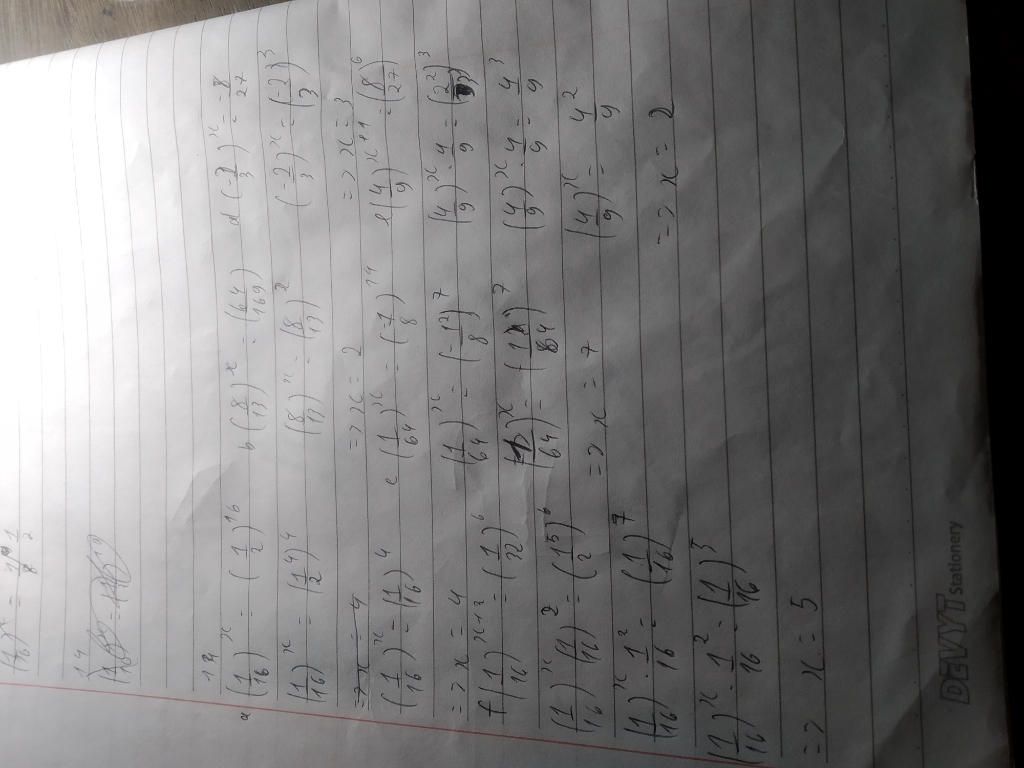 12
a (1/16)^x = (1/2)^16
(1/16)^x = (1^4/2)^4
=> x = 4
(1/16)^x = (1/16)^4
=> x = 4
f (1/16)^x+2 = (1/12)^6
(1/16)^x · (1/16)^2 = (1^5/2)^6
(1/16)^x · 1^2/16 = (1/16)^7
(1/16)^x · 1^2/16 = (1/16)^5
=> x = 5
b (8/13)^x = (64/169)
(8/13)^x = (8/13)^2
=> x = 2
c (1/64)^x = (-1/8)^14
(1/64)^x = (-1/8)^7
(1/64)^x = (1/64)^7
=> x = 7
d (-2/3)^x = -8/27
(-2/3)^x = (-2/3)^3
=> x = 3
e (4/9)^x+1 = (8/27)^6
(4/9)^x · 4/9 = (2^2/3)^3
(4/9)^x · 4/9 = 4^3/9
(4/9)^x = 4^2/9
=> x = 2
DEVYT Stationery